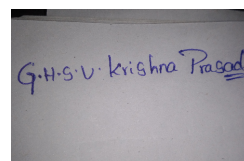 G.H.S.V. Krishna Prasad